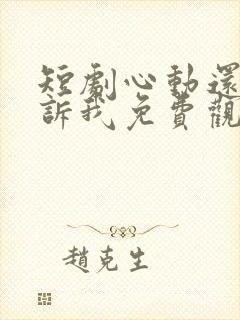 短劇心動還
訴我免費觀
趙克生